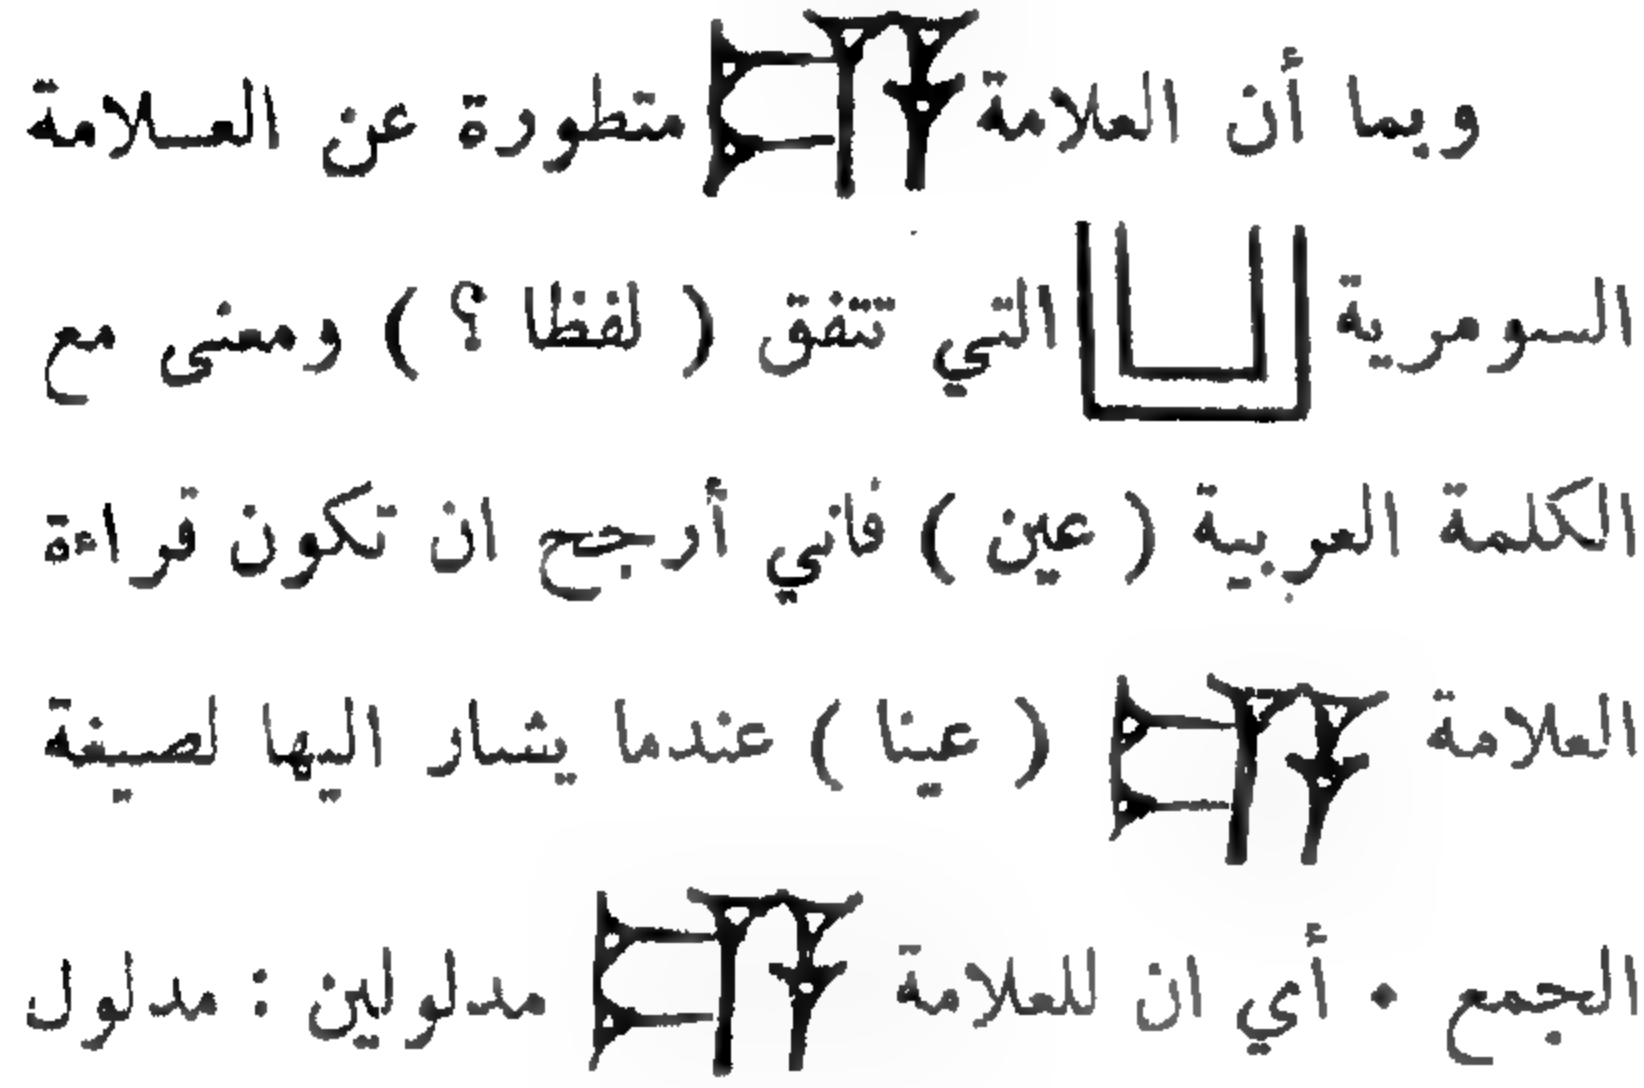 وبما أن العلامة متطورة عن العـلامة
السومرية التي تتفق ( لفظا ؟ ) ومعنى مع
الكلمة العربية ( عين ) فاني أرجح ان تكون قراءة
العلامة ( عينا ) عندما يشار اليها لصيغة
الجمع . أي ان للعلامة مدلولين : مدلول